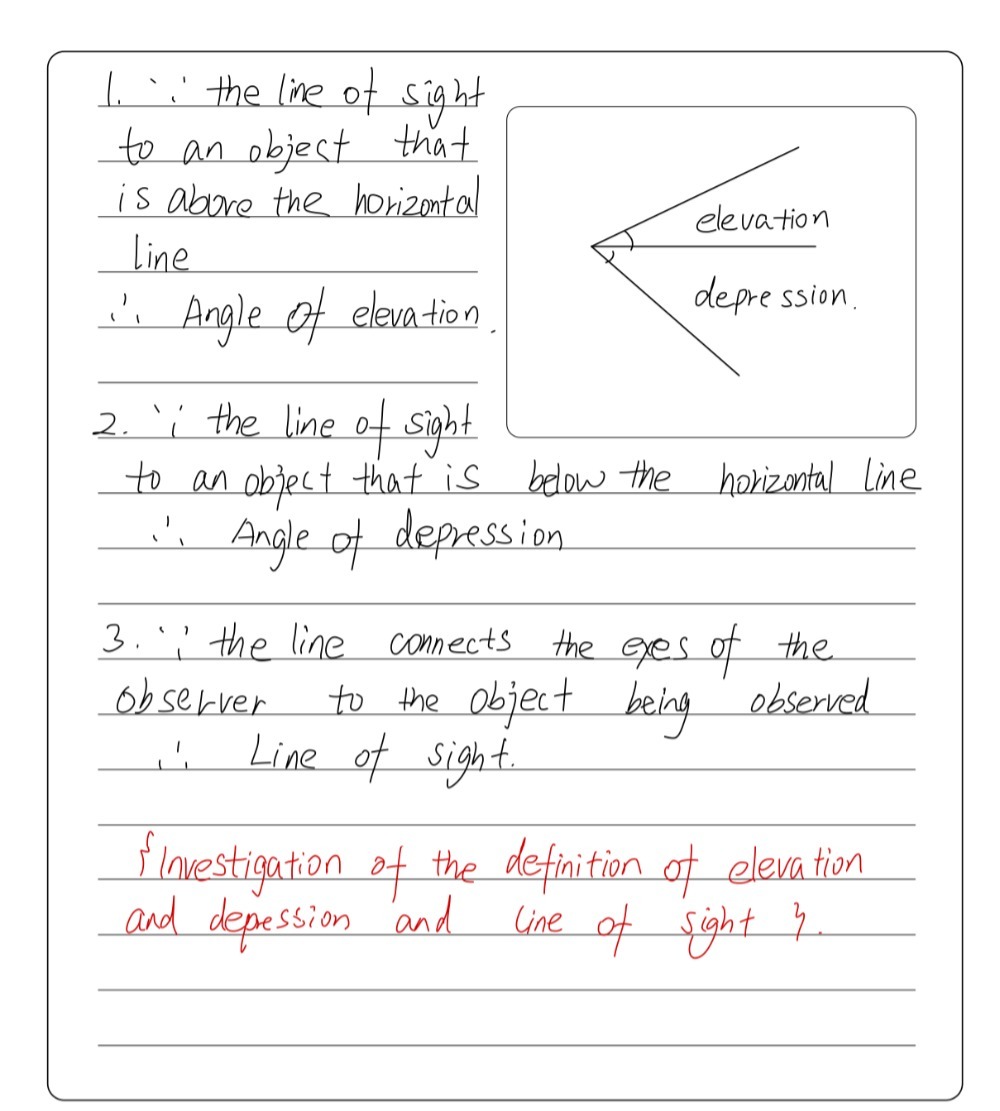 1. ∵ the line of sight
to an object that
is above the horizontal
line
∴ Angle of elevation.
elevation
depression.
2. ∵ the line of sight
to an object that is below the horizontal line
∴ Angle of depression
3. ∵ the line connects the eyes of the
observer to the object being observed
∴ Line of sight.
{Investigation of the definition of elevation
and depession and line of sight }.